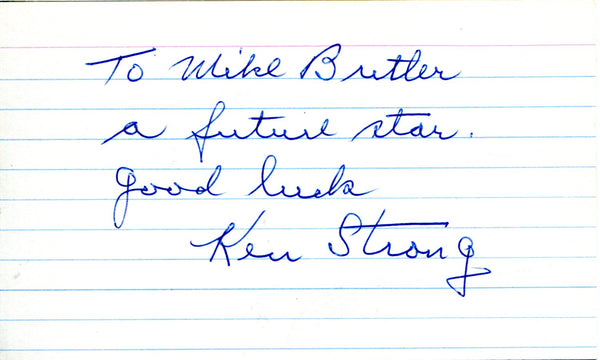 To Mike Butler
a future star.
good luck
Ken Strong